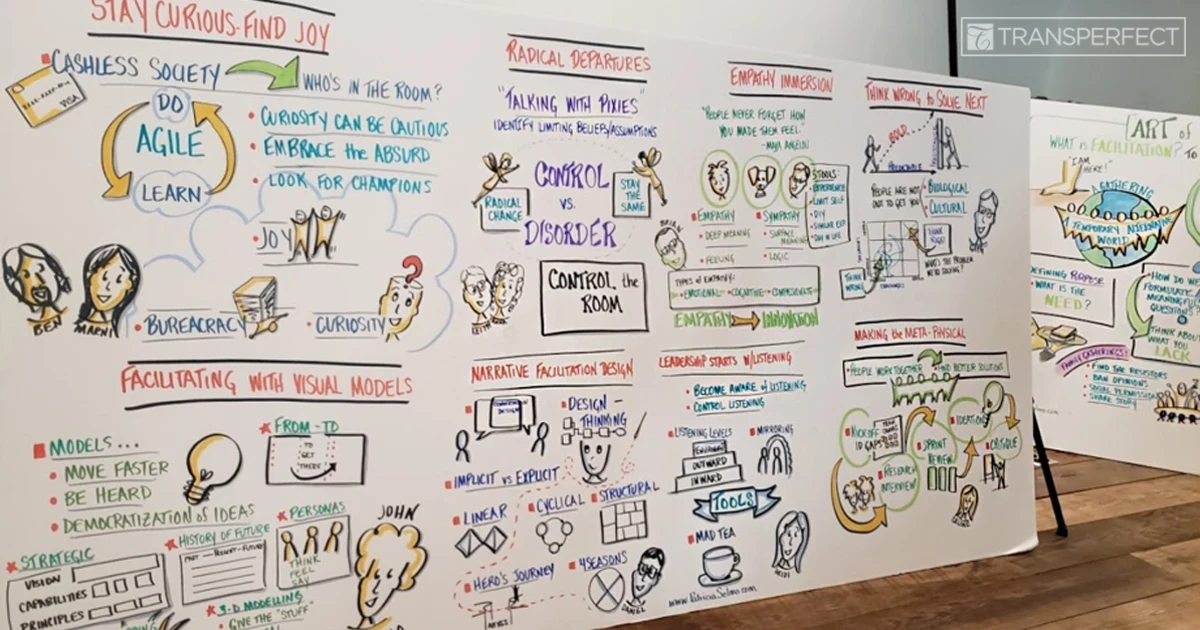 TRANSPERFECT
STAY CURIOUS-FIND JOY
CASHLESS SOCIETY
WHO'S IN THE ROOM?
VISA
DO
AGILE
LEARN
• CURIOSITY CAN BE CAUTIOUS
• EMBRACE the ABSURD
• LOOK FOR CHAMPIONS
• JOY
BEN
MARNI
• BUREACRACY
• CURIOSITY
?
RADICAL DEPARTURES
"TALKING WITH PIXIES"
IDENTIFY LIMITING BELIEFS/ASSUMPTIONS
RADICAL
CHANGE
CONTROL
VS.
DISORDER
STAY
THE
SAME
CONTROL the
ROOM
EMPATHY IMMERSION
"PEOPLE NEVER FORGET HOW
YOU MADE THEM FEEL"
-MAYA ANGELOU
BRIAN
EMPATHY
• DEEP MEANING
• FEELING
SYMPATHY
• SURFACE MEANING
• LOGIC
5 TOOLS:
• EXPERIENCE
• LIMIT SELF
• DIY
• SIMILAR EXP
• DAY IN LIFE
TYPES of EMPATHY:
EMOTIONAL COGNITIVE COMPASSIONATE
EMPATHY INNOVATION
THINK WRONG to SOLVE NEXT
BOLD
PEOPLE ARE NOT
OUT TO GET YOU
BIOLOGICAL
CULTURAL
THINK
RIGHT
THINK
WRONG
WHAT'S THE PROBLEM
WE'RE SOLVING?
FACILITATING WITH VISUAL MODELS
MODELS...
• MOVE FASTER
• BE HEARD
• DEMOCRATIZATION of IDEAS
FROM-TO
TO
GET
THERE
STRATEGIC
VISION
CAPABILITIES
PRINCIPLES
HISTORY OF FUTURE
PAST-PRESENT-FUTURE
PERSONAS
THINK
FEEL
SAY
JOHN
3-D MODELLING
• GIVE THE "STUFF"
NARRATIVE FACILITATION DESIGN
DESIGN-
THINKING
IMPLICIT vs EXPLICIT
LINEAR
CYCLICAL
STRUCTURAL
HERO'S JOURNEY
4 SEASONS
DANIEL
LEADERSHIP STARTS W/LISTENING
• BECOME AWARE of LISTENING
• CONTROL LISTENING
LISTENING LEVELS
OUTWARD
INWARD
MIRRORING
TOOLS
MAD TEA
HEIDI
MAKING the META-PHYSICAL
• PEOPLE WORK TOGETHER
FIND BETTER SOLUTIONS
KICKOFF
ID GAPS
RESEARCH
INTERVIEW
SPRINT
REVIEW
IDEATION
CRITIQUE
ART of
WHAT IS FACILITATION?
TO
"I AM
HERE!"
A GATHERING
A TEMPORARY ALTERNATIVE
WORLD
DEFINING PURPOSE
• WHAT IS THE
NEED?
HOW DO WE
FORMULATE
MEANINGFUL
QUESTIONS
THINK ABOUT
WHAT YOU
LACK
FAMILY GATHERINGS:
• FIND THE RESISTORS
• BAN OPINIONS
• SOCIAL PERMISSION
• SHARE STORY